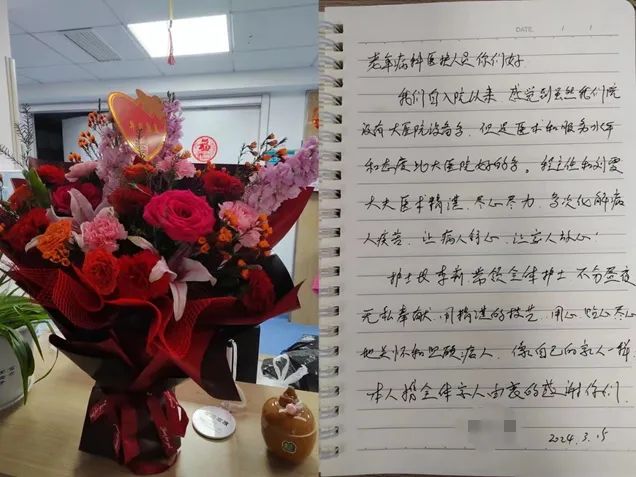 福
DATE / /
老年病科医护人员你们好
我们自入院以来，感觉到虽然我们院
没有大医院设备多，但是医术和服务水平
和态度比大医院好的多。主任和刘雯
大夫医术精湛，尽心尽力，多次化解病
人疾苦，让病人舒心，让家人放心！
护士长李莉带领全体护士不分昼夜
无私奉献，用精湛的技艺，用心贴心尽心
地关怀和照顾病人，像自己的家人一样
本人携全体家人由衷的感谢你们
2024.3.15